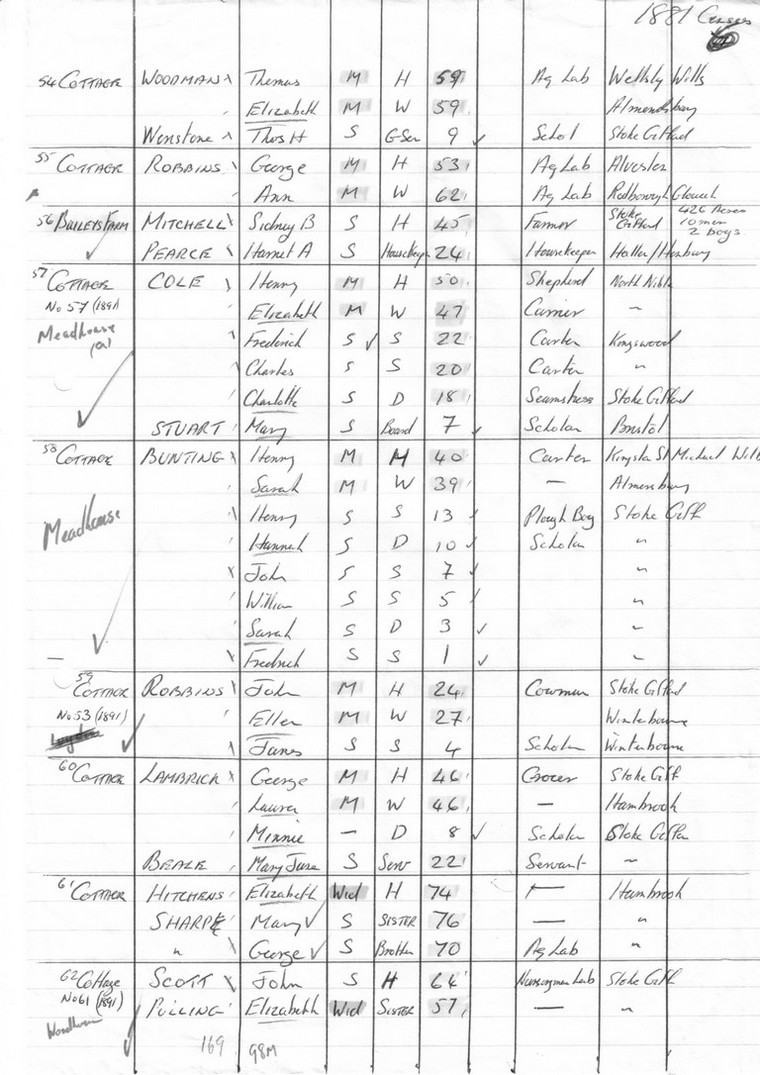 1881 Census
54 COTTAGER WOODMAN Thomas M H 59 Ag Lab Wellsly Wilts
Elizabeth M W 59 Almondsbury
Winstone Thos H S GSon 9 ✓ Schol Stoke Gifford
55 COTTAGER ROBBINS George M H 53 Ag Lab Alveston
Ann M W 62 Ag Lab Rodborough Glouch
56 BAILEYS FARM MITCHELL Sidney B S H 45 Farmer Stoke Gifford 426 Acres
10 men
2 boys
PEARCE Harriet A S Housekeeper 24 Housekeeper Hallen/Henbury
57 COTTAGER COLE Henry M H 50 Shepherd North Nibley
No 57 (1891) Elizabeth M W 47 Carrier "
Meadhouse (a) Frederick S ✓ S 22 Carter Kingswood
Charles S S 20 Carter "
Charlotte S D 18 Seamstress Stoke Gifford
STUART Mary S Board 7 ✓ Scholar Bristol
58 COTTAGER BUNTING Henry M H 40 Carter Kingston St Michael Wilts
Sarah M W 39 — Almonsbury
Meadhouse Henry S S 13 ✓ Plough Boy Stoke Giff
Hannah S D 10 ✓ Scholar "
John S S 7 ✓ "
William S S 5 ✓ "
Sarah S D 3 ✓ "
Fredrick S S 1 ✓ "
59 COTTAGER ROBBINS John M H 24 Cowman Stoke Gifford
No. 53 (1891) Ellen M W 27 Winterbourne
James S S 4 Scholar Winterbourne
60 COTTAGER LAMBRICK George M H 46 Grocer Stoke Giff
Laura M W 46 — Hambrook
Minnie — D 8 ✓ Scholar Stoke Giffor
BEALE Mary Jane S Serv 22 Servant "
61 COTTAGER HITCHENS Elizabeth Wid H 74 — Hambrook
SHARPE Mary ✓ S SISTER 76 — "
" George ✓ S Brother 70 Ag Lab "
62 Cottage SCOTT John S H 64 Nurseryman Lab Stoke Giff
No 61 (1891) PULLING Elizabeth Wid SISTER 57 — "
169 98M